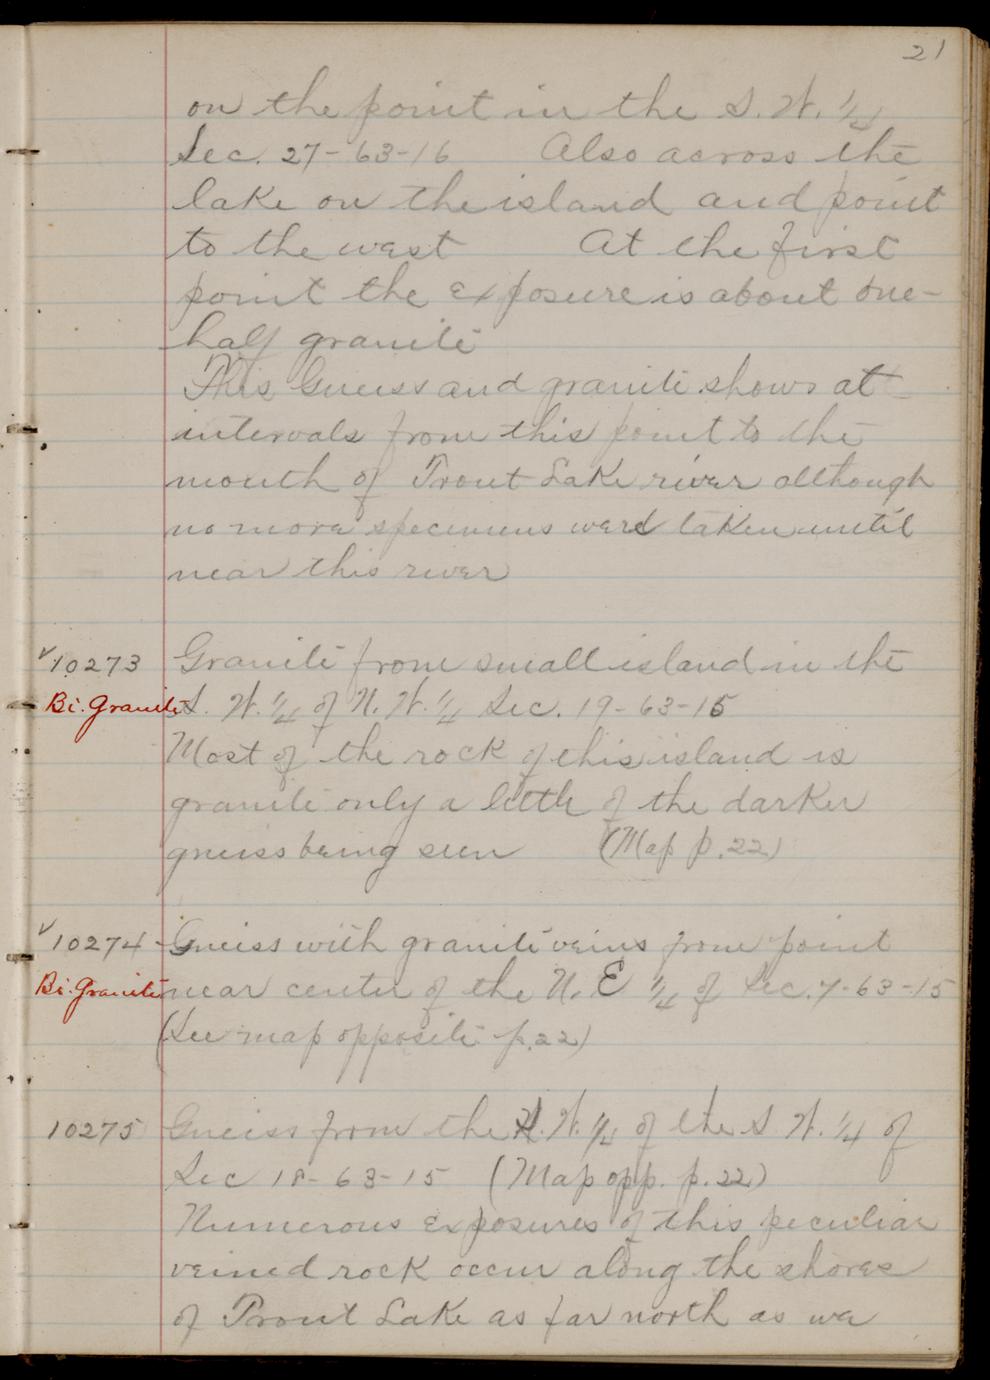 21
on the point in the S. W. 1/4
Sec. 27-63-16 Also across the
lake on the island and point
to the west At the first
point the exposure is about one-
half granite
This Gneiss and granite shows at
intervals from this point to the
mouth of Trout Lake river although
no more specimens were taken until
near this river
✓10273 Granite from small island in the
Bi. Granite S. W. 1/4 of N. W. 1/4 Sec. 19-63-15
Most of the rock of this island is
granite only a little of the darker
gneiss being seen (Map p. 22)
✓10274 - Gneiss with granite veins from point
Bi. Granite near center of the N. E 1/4 of Sec. 7-63-15
(See map opposite p. 22)
10275 Gneiss from the W. 1/4 of the S W. 1/4 of
Sec 18-63-15 (Map opp. p. 22)
Numerous exposures of this peculiar
veined rock occur along the shores
of Trout Lake as far north as we